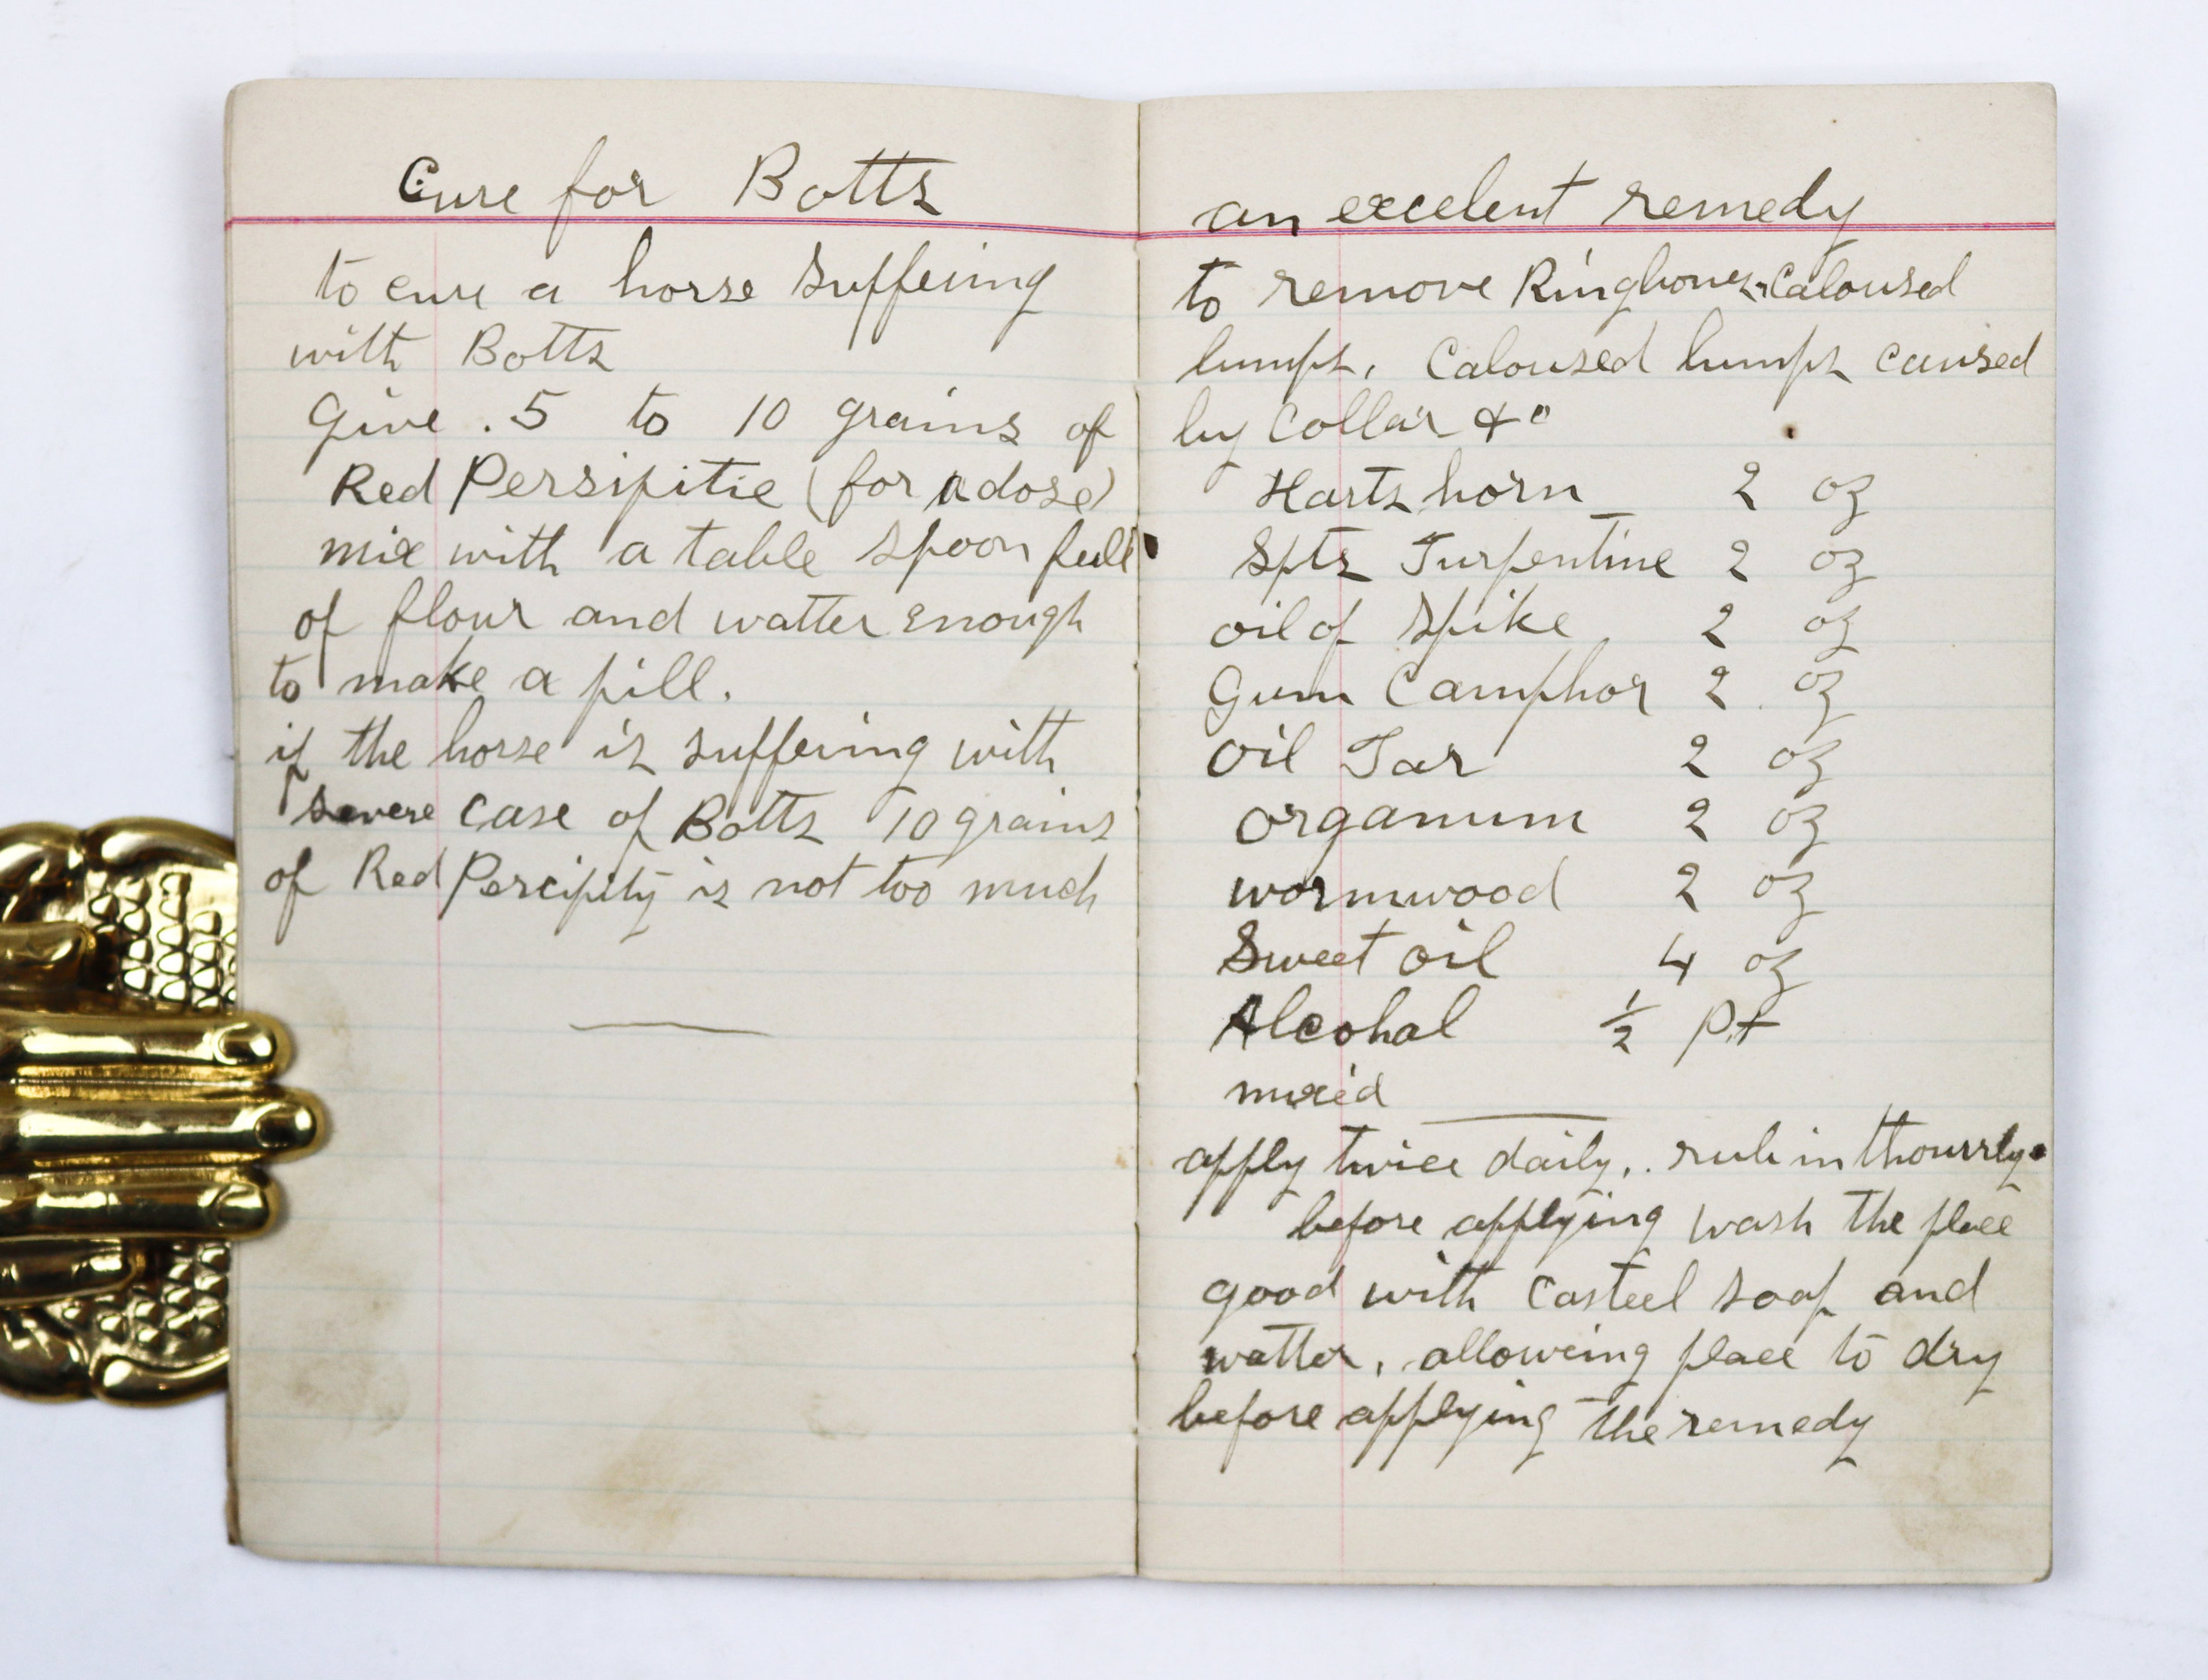 Cure for Botts
to cure a horse suffering
with Botts
Give . 5 to 10 grains of
Red Persipitie (for a dose)
mix with a table spoon full
of flour and watter enough
to make a pill.
if the horse is suffering with
severe case of Botts 10 grains
of Red Percipity is not too much
an excelent remedy
to remove Ringbones, Caloused
lumps, Caloused lumps caused
by Collar &c
Harts horn 2 oz
Spts Turpentine 2 oz
oil of Spike 2 oz
Gum Camphor 2 oz
Oil Tar 2 oz
Organum 2 oz
wormwood 2 oz
Sweet oil 4 oz
Alcohal ½ Pt
mixed
apply twice daily, . rub in thourrly.
before applying wash the place
good with Casteel soap and
watter, allowing place to dry
before applying the remedy